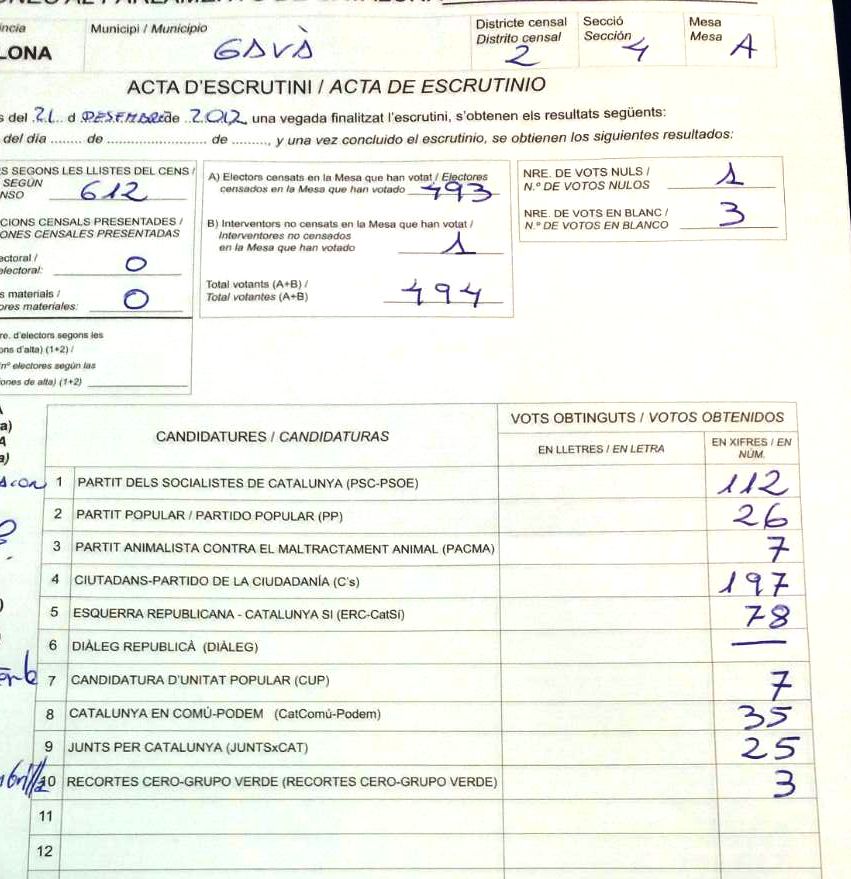 Municipi / Municipio
LONA
GAVÀ
Districte censal
Distrito censal
2
Secció
Sección
4
Mesa
Mesa
A
ACTA D'ESCRUTINI / ACTA DE ESCRUTINIO
s del 21 d DESEMBRE de 2012, una vegada finalitzat l'escrutini, s'obtenen els resultats següents:
del día ........ de ........................ de ........, y una vez concluido el escrutinio, se obtienen los siguientes resultados:
S SEGONS LES LLISTES DEL CENS /
SEGÚN
NSO
612
CIONS CENSALS PRESENTADES /
ONES CENSALES PRESENTADAS
ectoral /
electoral:
0
s materials /
ores materiales:
0
re. d'electors segons les
ons d'alta) (1+2) /
nº electores según las
ones de alta) (1+2)
A) Electors censats en la Mesa que han votat / Electores
censados en la Mesa que han votado 493
B) Interventors no censats en la Mesa que han votat /
Interventores no censados
en la Mesa que han votado 1
Total votants (A+B) /
Total votantes (A+B) 494
NRE. DE VOTS NULS /
N.º DE VOTOS NULOS 1
NRE. DE VOTS EN BLANC /
N.º DE VOTOS EN BLANCO 3
CANDIDATURES / CANDIDATURAS
VOTS OBTINGUTS / VOTOS OBTENIDOS
EN LLETRES / EN LETRA
EN XIFRES / EN
NÚM.
1 PARTIT DELS SOCIALISTES DE CATALUNYA (PSC-PSOE) 112
2 PARTIT POPULAR / PARTIDO POPULAR (PP) 26
3 PARTIT ANIMALISTA CONTRA EL MALTRACTAMENT ANIMAL (PACMA) 7
4 CIUTADANS-PARTIDO DE LA CIUDADANÍA (C's) 197
5 ESQUERRA REPUBLICANA - CATALUNYA SI (ERC-CatSí) 78
6 DIÀLEG REPUBLICÀ (DIÀLEG) —
7 CANDIDATURA D'UNITAT POPULAR (CUP) 7
8 CATALUNYA EN COMÚ-PODEM (CatComú-Podem) 35
9 JUNTS PER CATALUNYA (JUNTSxCAT) 25
10 RECORTES CERO-GRUPO VERDE (RECORTES CERO-GRUPO VERDE) 3
11
12